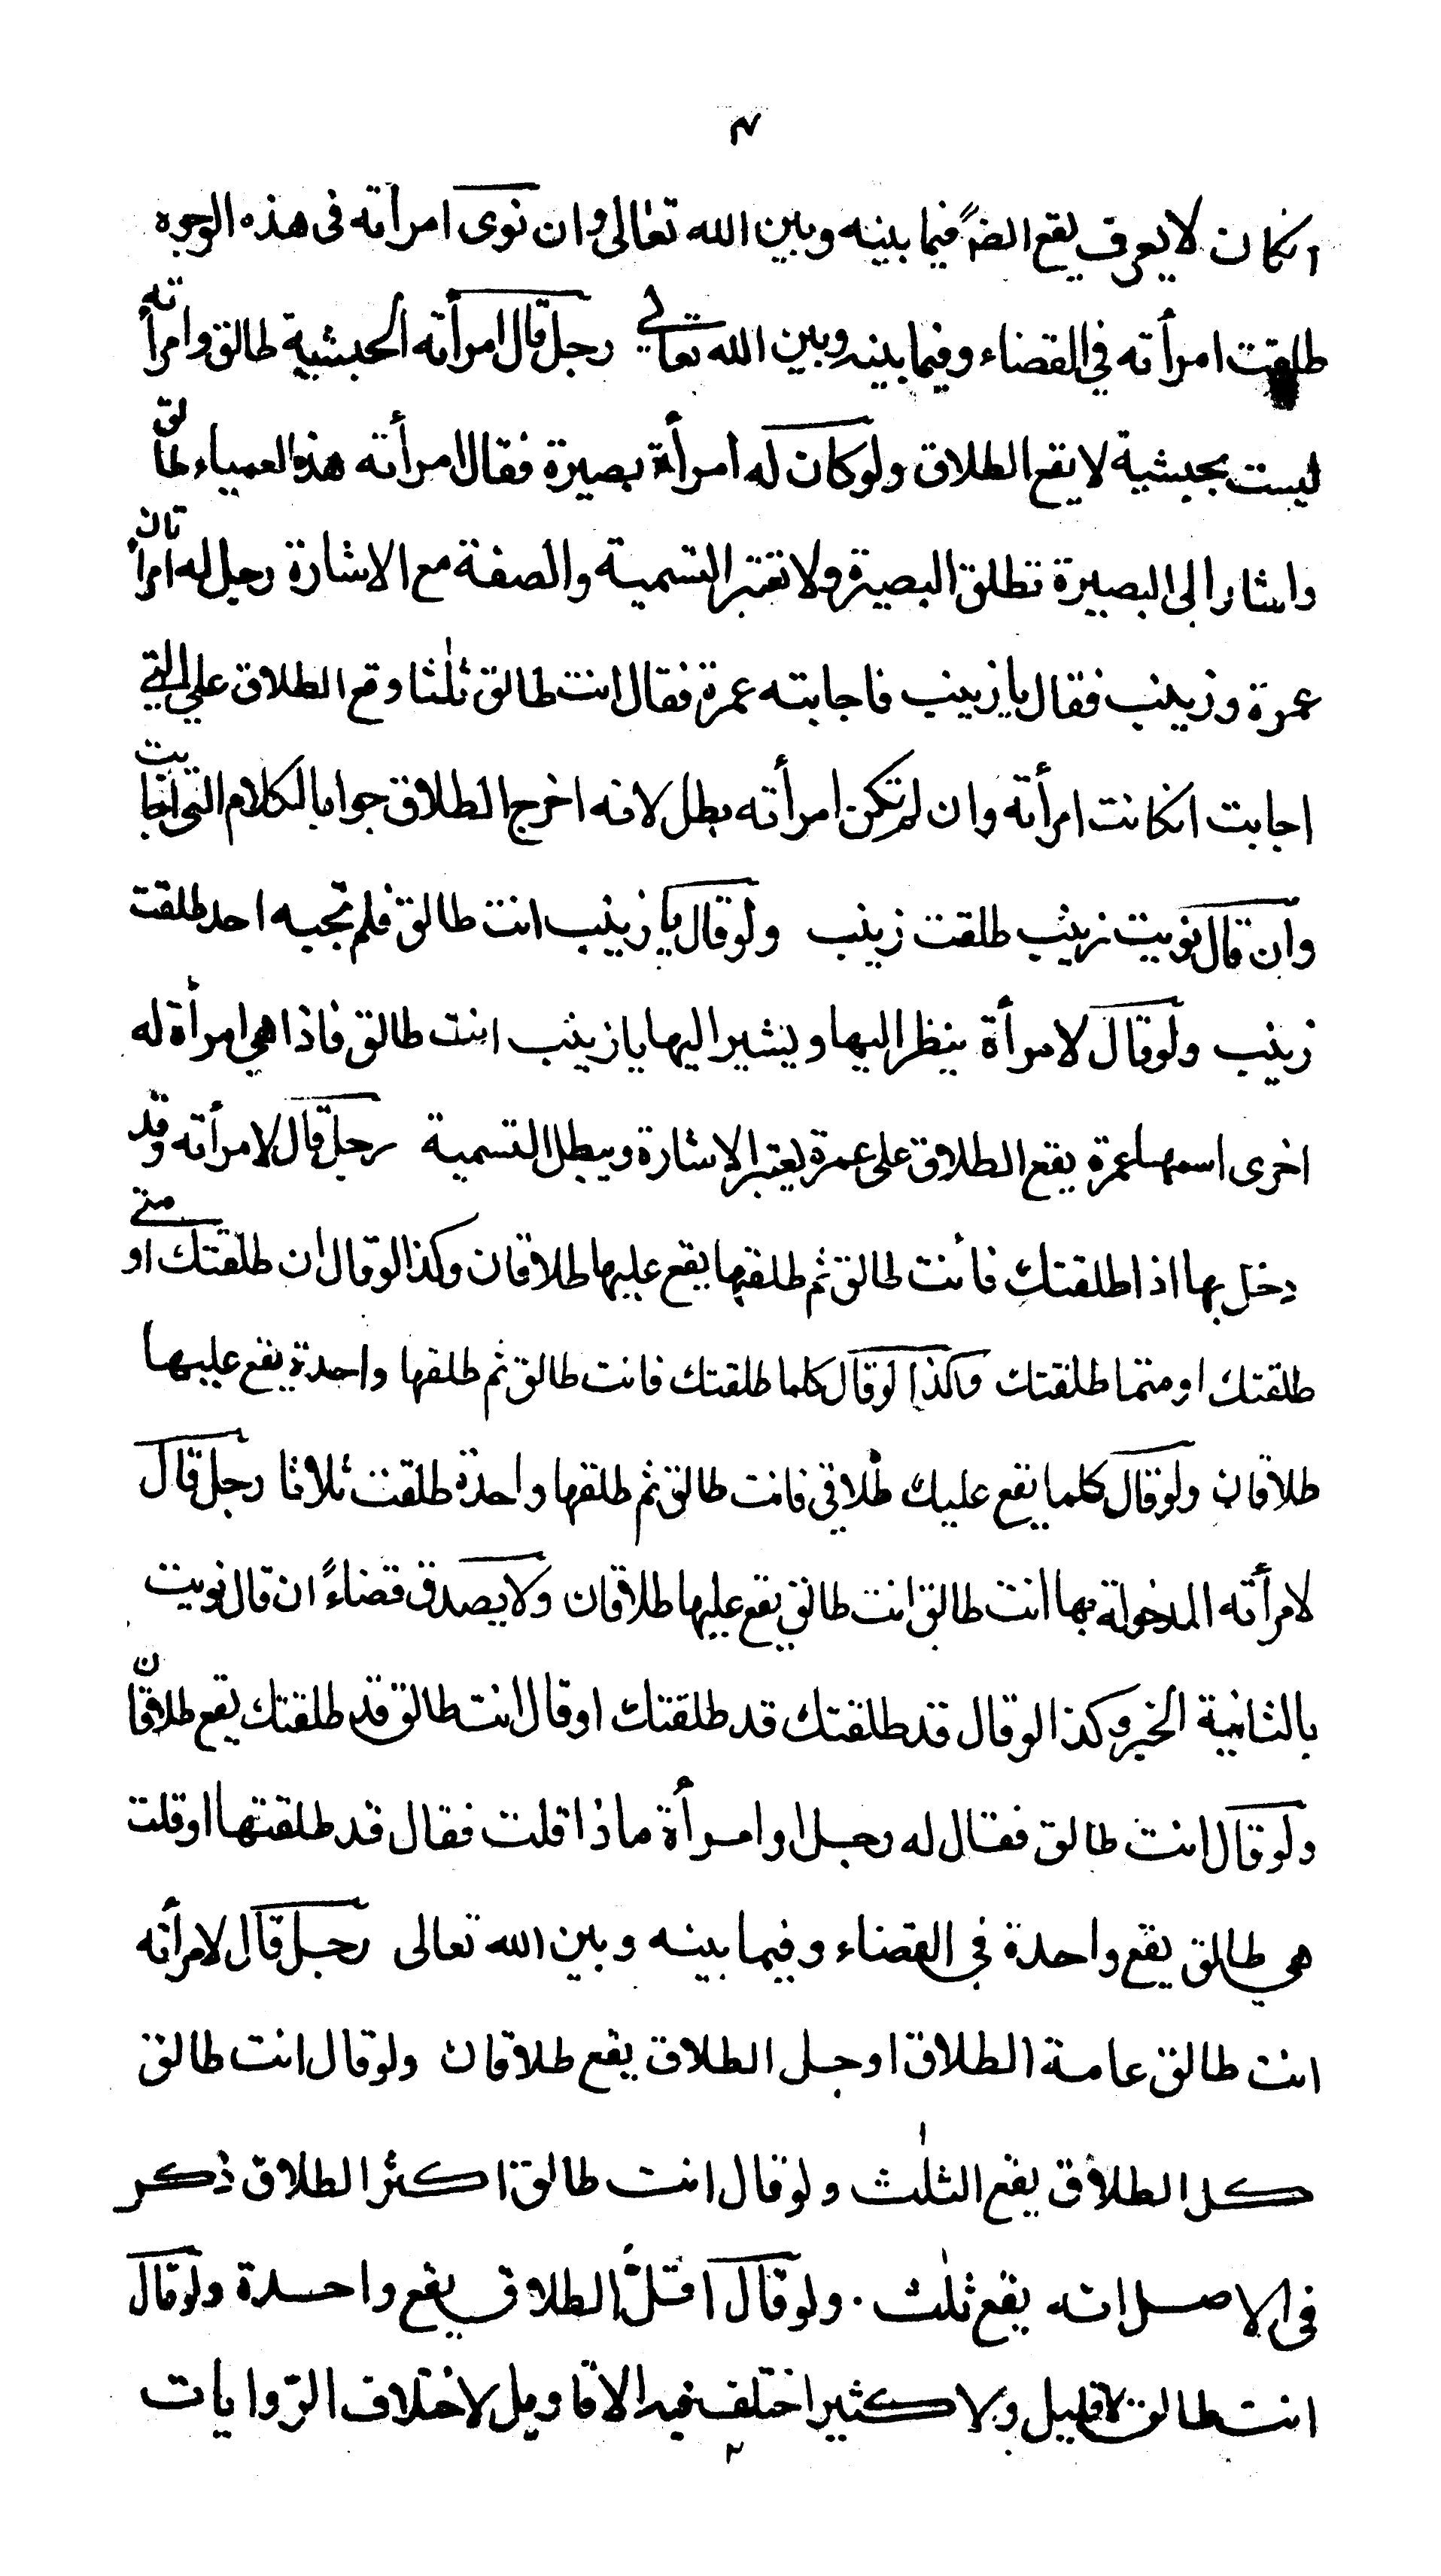 ٣
انكان لا يعرف يقع ايضًا فيما بينه وبين الله تعالى وان نوى امرأته فى هذه الوجوه
طلقت امرأته في القضاء وفيما بينه وبين الله تعالى رجل قال امرأته الحبشية طالق وامرأته
ليست بحبشية لا يقع الطلاق ولو كان له امرأة بصيرة فقال امرأته هذه العمياء طالق
واشار الى البصيرة تطلق البصيرة ولا تعتبر التسمية والصفة مع الاشارة رجل له امرأتان
عمرة وزينب فقال يا زينب فاجابته عمرة فقال انت طالق ثلثا وقع الطلاق علي التي
اجابت انكانت امرأته وان لم تكن امرأته بطل لانه اخرج الطلاق جوابا لكلام التى اجابت
وان قال نويت زينب طلقت زينب ولو قال يا زينب انت طالق فلم تجبه احد طلقت
زينب ولو قال لامرأة ينظر اليها ويشير اليها يا زينب انت طالق فاذا هي امرأة له
اخرى اسمها عمرة يقع الطلاق على عمرة يعتبر الاشارة ويبطل التسمية رجل قال لامرأته وقد
دخل بها اذا طلقتك فأنت طالق ثم طلقها يقع عليها طلاقان وكذا لو قال ان طلقتك او متى
طلقتك او متما طلقتك وكذا لو قال كلما طلقتك فانت طالق ثم طلقها واحدة يقع عليها
طلاقان ولو قال كلما يقع عليك طلاقي فانت طالق ثم طلقها واحدة طلقت ثلاثا رجل قال
لامرأته المدخولة بها انت طالق انت طالق يقع عليها طلاقان ولا يصدق قضاءً ان قال نويت
بالثانية الخبر وكذا لو قال قد طلقتك قد طلقتك او قال انت طالق قد طلقتك يقع طلاقان
ولو قال انت طالق فقال له رجل او امرأة ماذا قلت فقال قد طلقتها او قلت
هي طالق يقع واحدة فى القضاء وفيما بينه وبين الله تعالى رجل قال لامرأته
انت طالق عامة الطلاق او جل الطلاق يقع طلاقان ولو قال انت طالق
كل الطلاق يقع الثلث ولو قال انت طالق اكثر الطلاق ذكر
فى الاصل انه يقع ثلث . ولو قال اقل الطلاق يقع واحدة ولو قال
انت طالق لا قليل ولا كثير اختلف فيه الاقاويل لاختلاف الروايات
٢